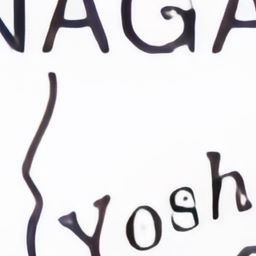 NAGA
Yosh